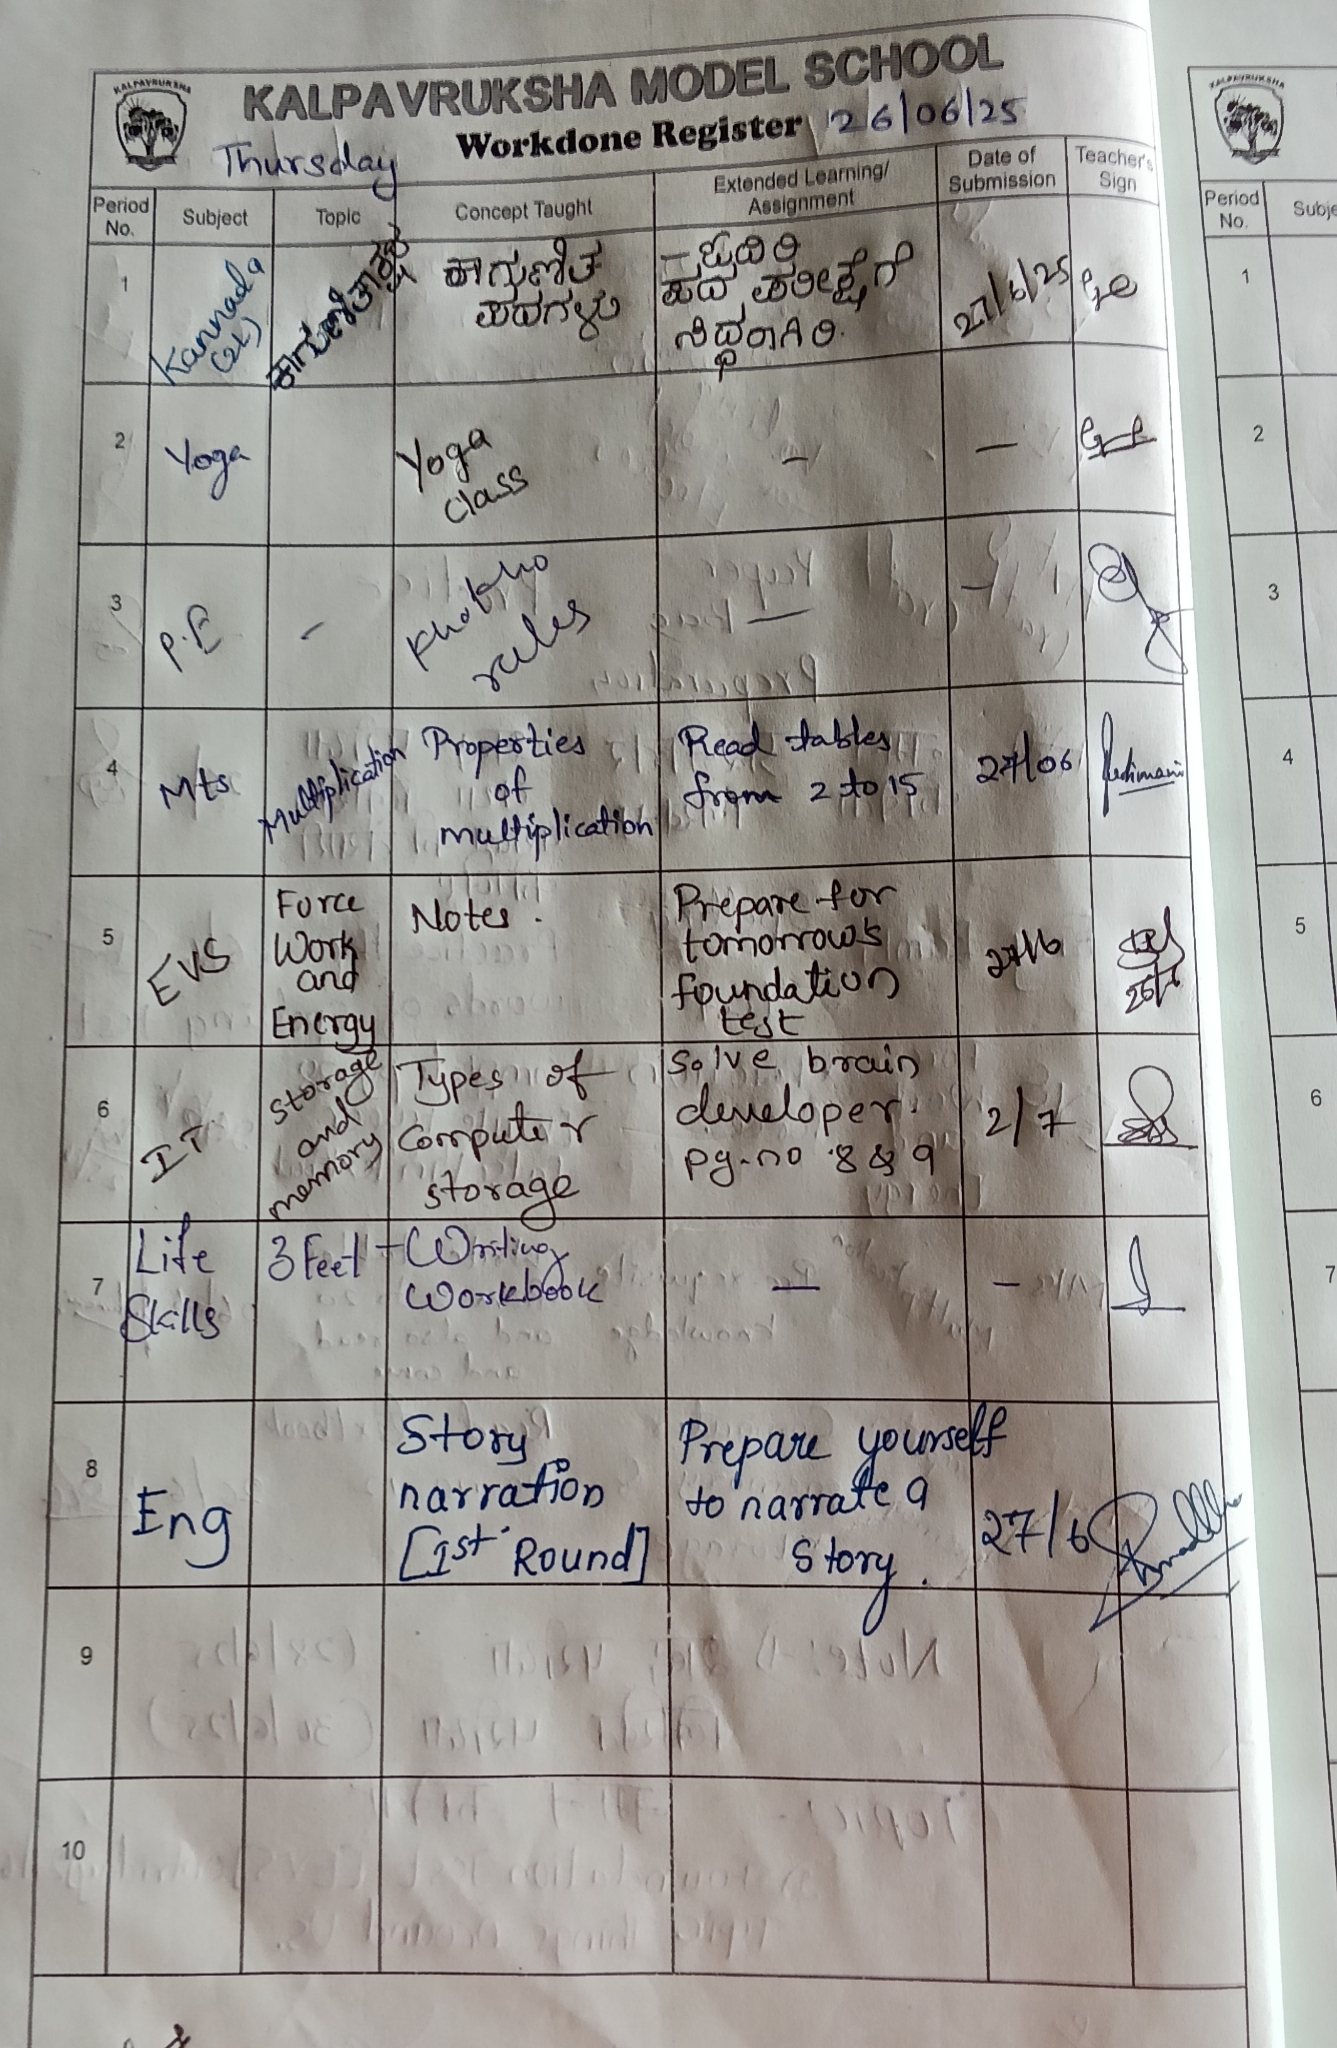 KALPAVRUKSHA
KALPAVRUKSHA MODEL SCHOOL
Workdone Register 26/06/25
Thursday
Period No.
Subject
Topic
Concept Taught
Extended Learning/
Assignment
Date of
Submission
Teacher's
Sign
1
Kannada
(2L)
ಕಾಗುಣಿತಾಕ್ಷರ
ಕಾಗುಣಿತ
ಪದಗಳು
– ಓದಿರಿ
ಪದ ಪರೀಕ್ಷೆಗೆ
ಸಿದ್ಧರಾಗಿರಿ.
27/6/25
2
Yoga
Yoga
class
–
–
3
P.E
–
Kho kho
rules
–
–
4
Mts
Multiplication
Properties
of
multiplication
Read tables
from 2 to 15
27/06
5
EVS
Force
Work
and
Energy
Notes.
Prepare for
tomorrow's
foundation
test
27/6
6
IT
Storage
and
memory
Types of
Computer
storage
Solve brain
developer
pg.no 8 & 9
2/7
7
Life
Skills
3 Feet
– Writing
Workbook
–
–
8
Eng
Story
narration
[1st Round]
Prepare yourself
to narrate a
Story.
27/6
9
10
KALPAVRUKSHA
Period
No.
1
2
3
4
5
6
7